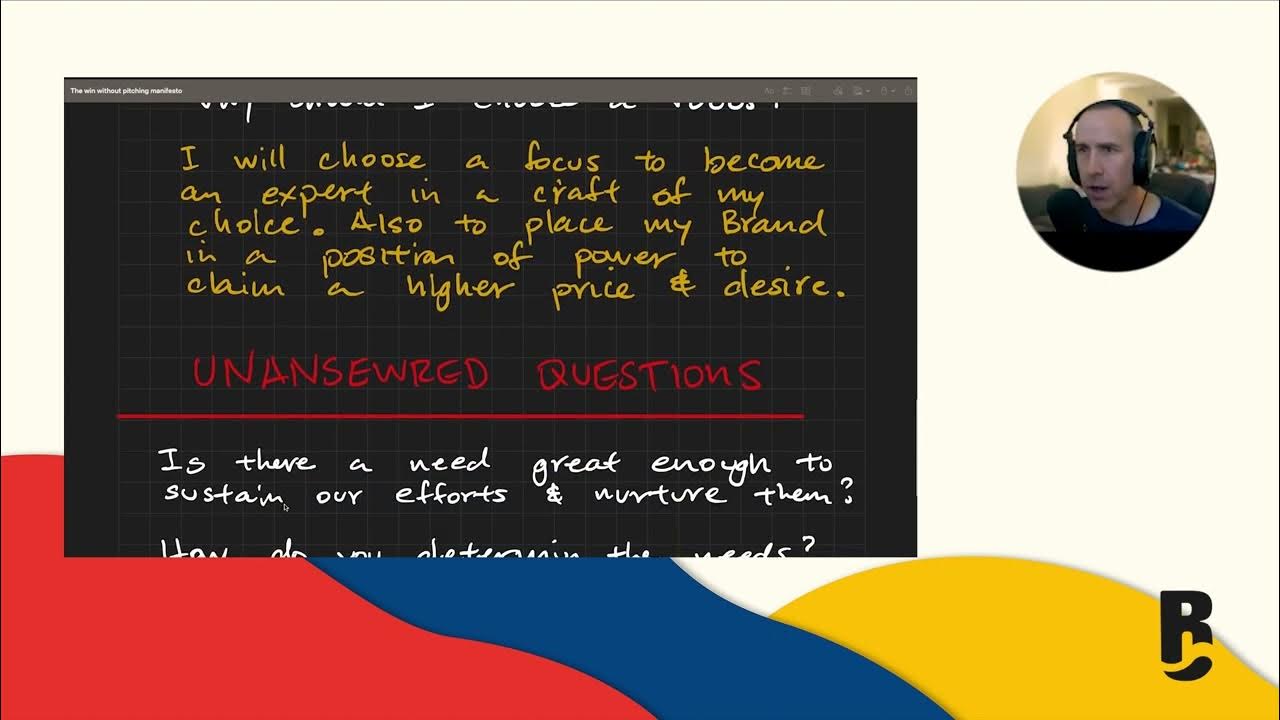 The win without pitching manifesto
I will choose a focus to become
an expert in a craft of my
choice. Also to place my Brand
in a position of power to
claim a higher price & desire.
UNANSEWRED QUESTIONS
Is there a need great enough to
sustain our efforts & nurture them?
How do you determin the needs?